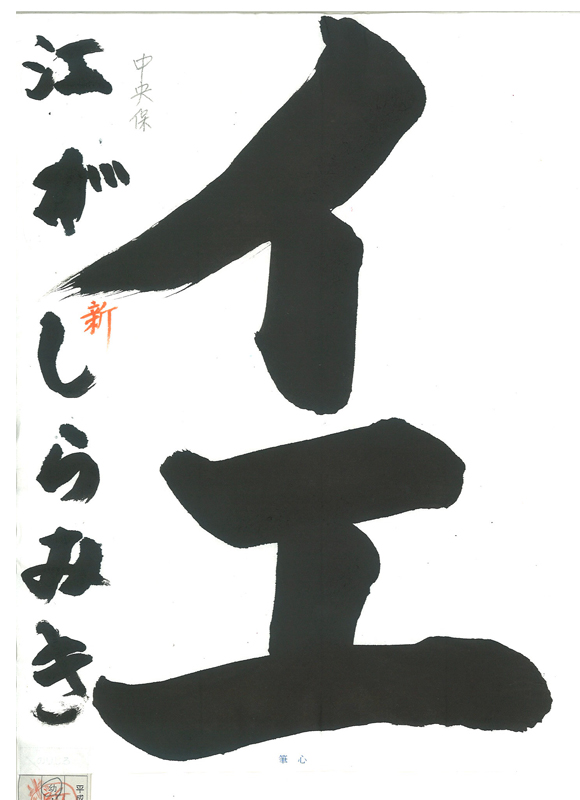 イエ
中央保
江がしらみき
新
筆心
平成